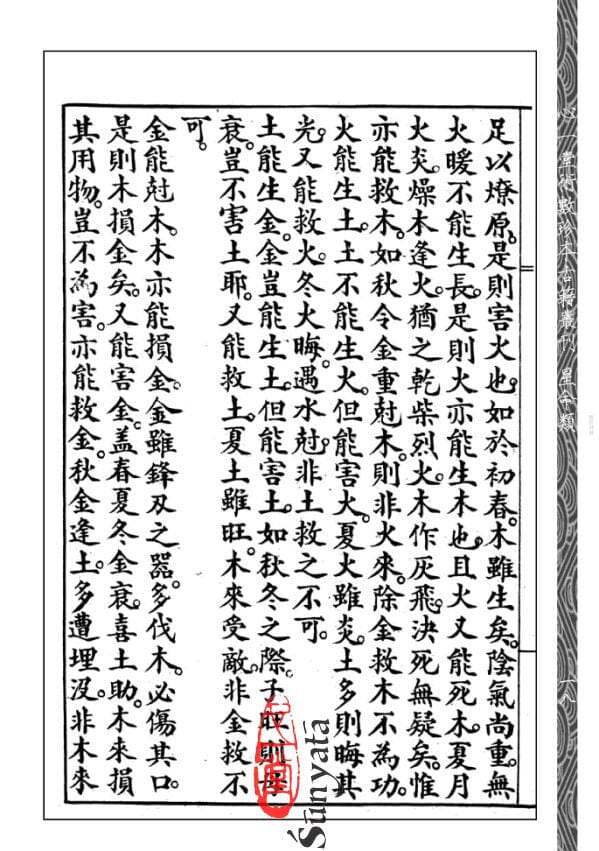 心一堂術數珍本古籍叢刊 星命類
一八
足以燎原。是則害火也。如於初春。木雖生矣。陰氣尚重。無
火暖不能生長。是則火亦能生木也。且火又能死木。夏月
火炎。燥木逢火。猶之乾柴烈火。木作灰飛。決死無疑矣。惟
亦能救木。如秋令金重尅木。則非火來。除金救木不為功。
火能生土。土不能生火。但能害火。夏火雖炎。土多則晦其
光。又能救火。冬火晦。遇水尅。非土救之不可。
土能生金。金豈能生土。但能害土。如秋冬之際。子旺則母
衰。豈不害土耶。又能救土。夏土雖旺。木來受敵。非金救不
可。
金能尅木。木亦能損金。金雖鋒刃之器。多伐木。必傷其口。
是則木損金矣。又能害金。盖春夏冬金衰。喜土助。木來損
其用物。豈不為害。亦能救金。秋金逢土。多遭埋沒。非木來
Śūnyatā